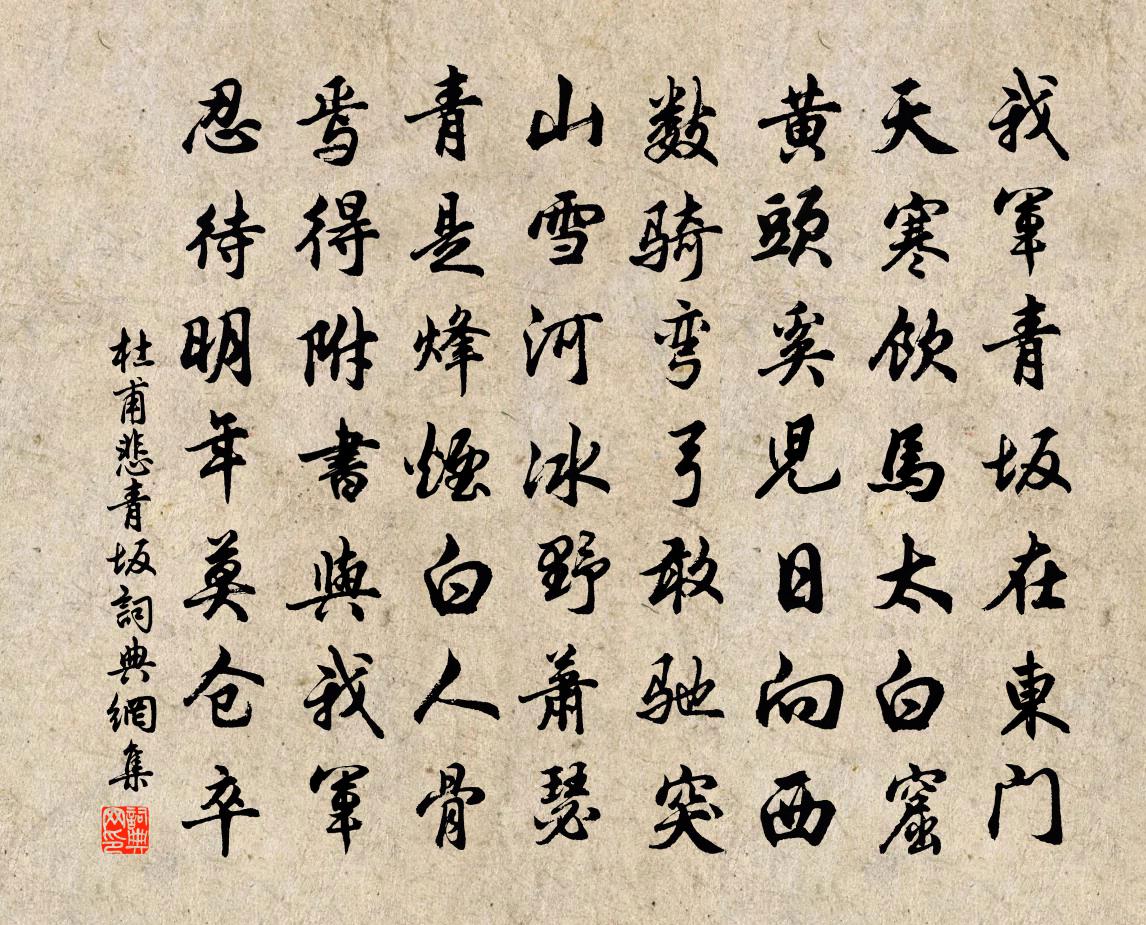 我軍青坂在東門
天寒飲馬太白窟
黃頭奚兒日向西
數騎彎弓敢馳突
山雪河冰野蕭瑟
青是烽煙白人骨
焉得附書與我軍
忍待明年莫倉卒
杜甫悲青坂詞典網集
詞典网印